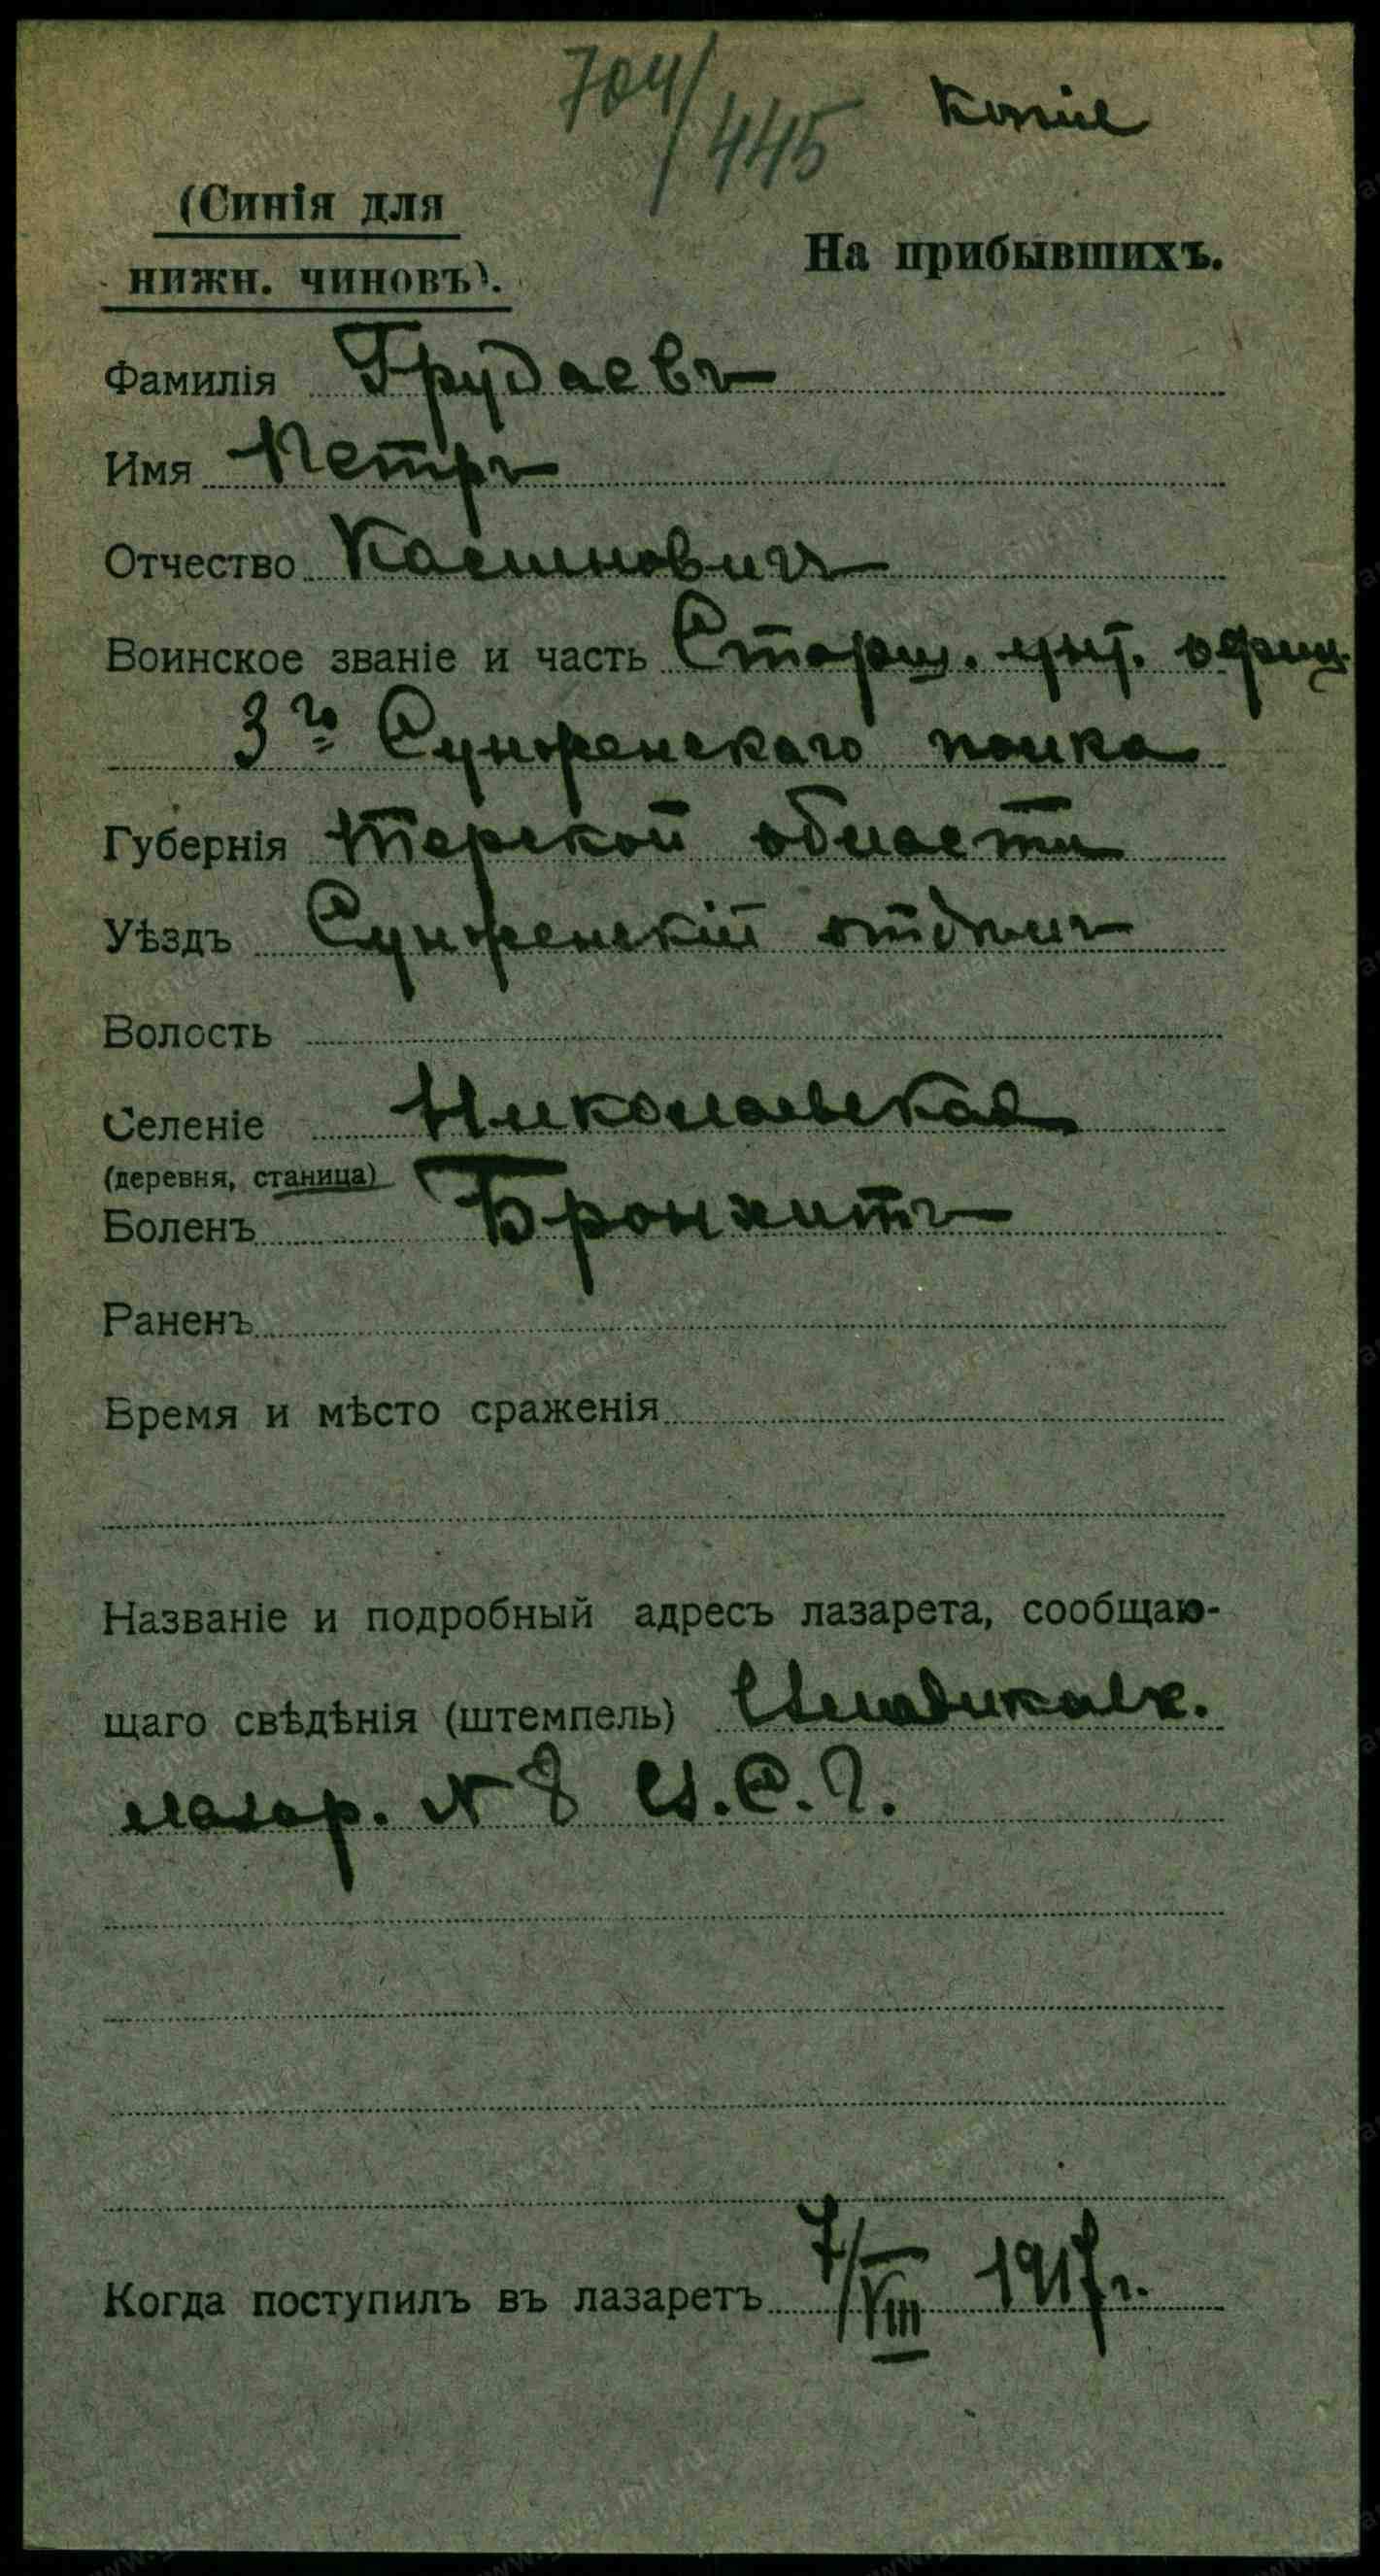 704/445 копiе
(Синія для
нижн. чиновъ).
На прибывшихъ.
Фамилія Грудаевъ
Имя Петръ
Отчество Касиновичъ
Воинское званіе и часть Старш. унт. офиц.
3го Сунженскаго полка
Губернія Терской области
Уѣздъ Сунженскій отдѣлъ
Волость
Селеніе Николаевская
(деревня, станица)
Боленъ Бронхитъ
Раненъ
Время и мѣсто сраженія
Названіе и подробный адресъ лазарета, сообщаю-
щаго свѣдѣнія (штемпель) Владикавк.
лазар. № 8 В.С.Г.
Когда поступилъ въ лазаретъ 7/VIII 1917 г.